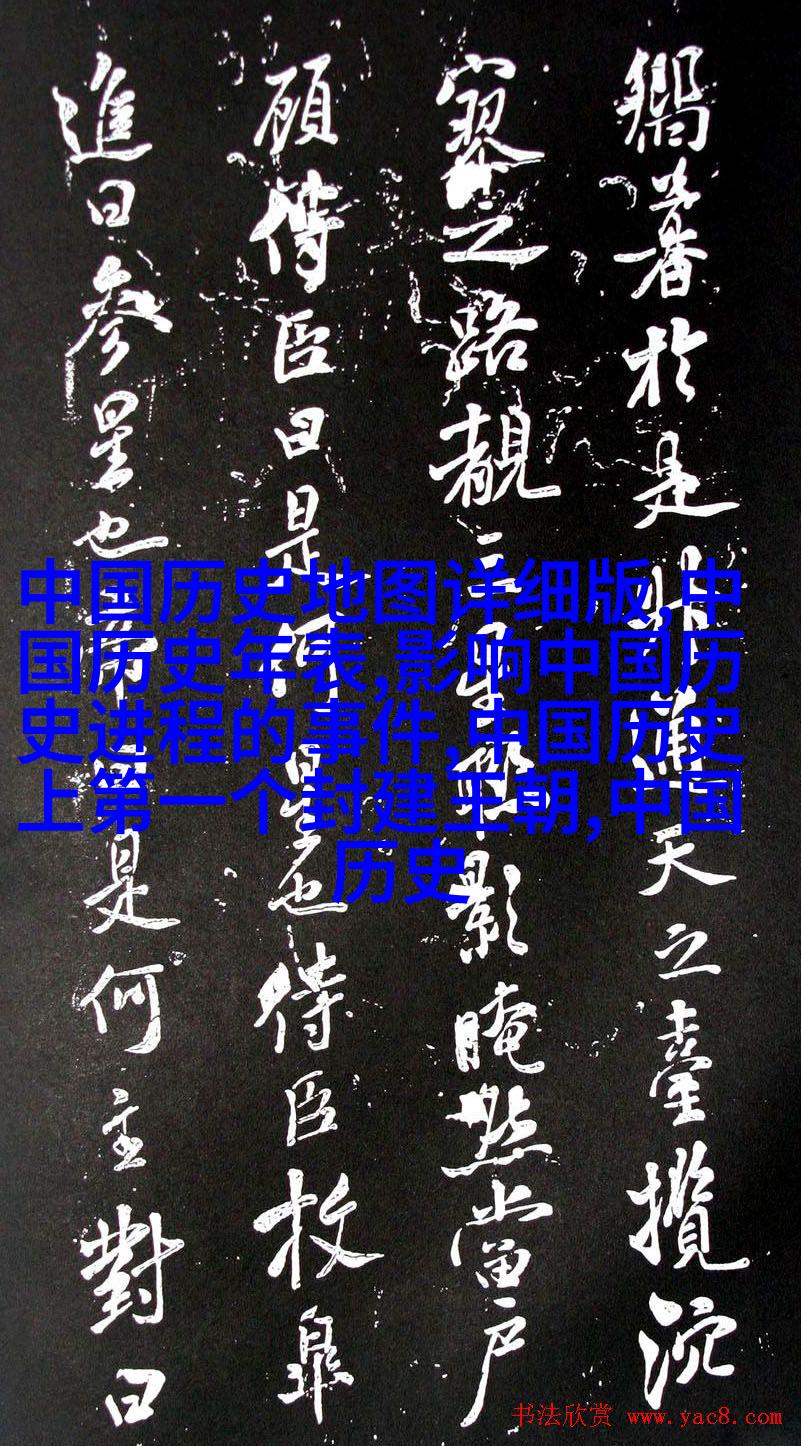 嚮暮於是通天之臺攬泬
寥之路覩三星影晻然當戶
顧侍臣曰是何星也侍臣枚皋
進曰參星也帝曰是何主對曰
中国历史地图详细版,中
国历史年表,影响中国历
史进程的事件,中国历史
上第一个封建王朝,中国
历史
书法欣赏 www.yac8.com